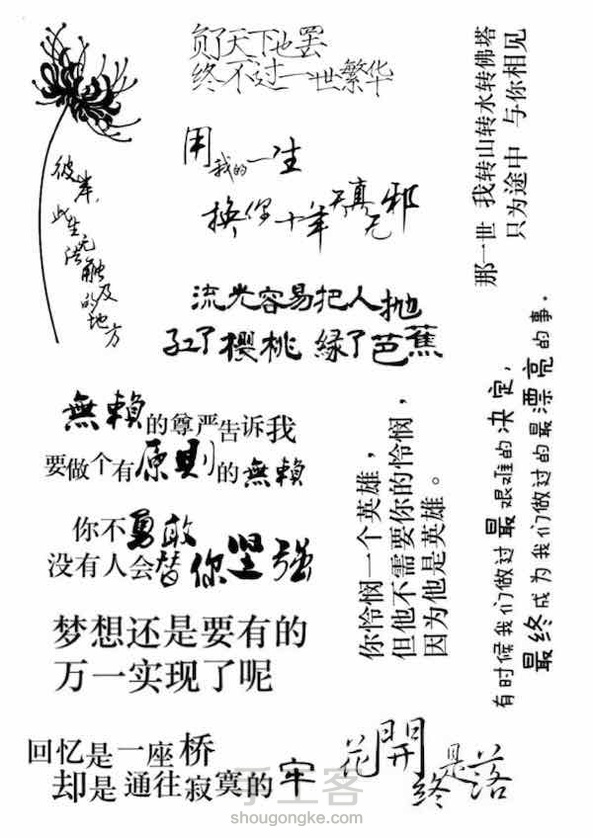 负了天下也罢
终不过一世繁华
彼岸，
此生无
法触及
的地方
用我的一生
换你十年天真无邪
那一世 我转山转水转佛塔
只为途中 与你相见
流光容易把人抛
红了樱桃 绿了芭蕉
無賴的尊严告诉我
要做个有原則的無賴
你不勇敢
没有人会替你坚强
你怜悯一个英雄，
但他不需要你的怜悯，
因为他是英雄。
有时候我们做过最艰难的决定，
最终成为我们做过的最漂亮的事。
梦想还是要有的
万一实现了呢
回忆是一座桥
却是通往寂寞的牢
花開終是落
手工客
shougongke.com